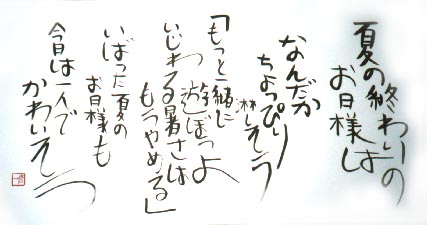 夏の終わりの
お日様は
なんだか
ちょっぴり
淋しそう
「もっと一緒に
遊ぼうよ
いじわる暑さは
もうやめる」
いばった夏の
お日様も
今日は一人で
かわいそう